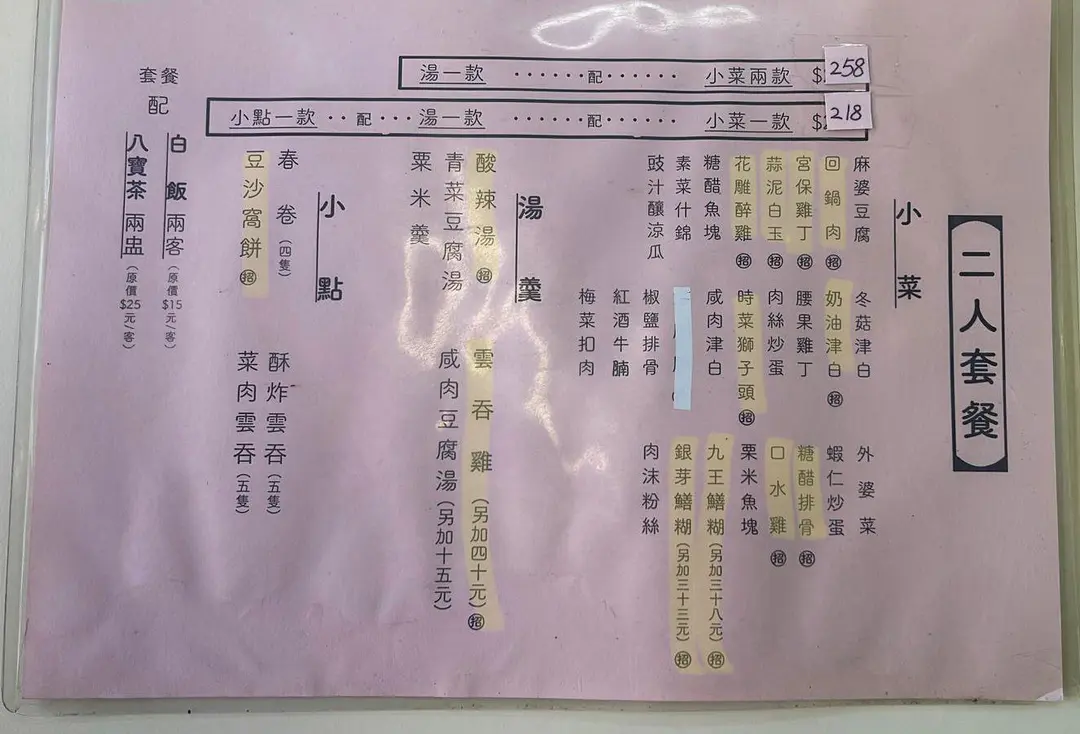 【二人套餐】
湯一款 ······配······ 小菜兩款 $258
小點一款 ··配··· 湯一款 ······配······ 小菜一款 $218
小菜
麻婆豆腐
回鍋肉 招
宮保雞丁 招
蒜泥白玉 招
花雕醉雞 招
糖醋魚塊
素菜什錦
豉汁釀涼瓜
冬菇津白
奶油津白 招
腰果雞丁
肉絲炒蛋
時菜獅子頭 招
咸肉津白
椒鹽排骨
紅酒牛腩
梅菜扣肉
外婆菜
蝦仁炒蛋
糖醋排骨 招
口水雞 招
粟米魚塊
九王鱔糊(另加三十八元) 招
銀芽鱔糊(另加三十三元) 招
肉沫粉絲
湯羹
酸辣湯 招
青菜豆腐湯
粟米羹
雲吞雞(另加四十元) 招
咸肉豆腐湯(另加十五元)
小點
春卷(四隻)
豆沙窩餅 招
酥炸雲吞(五隻)
菜肉雲吞(五隻)
套餐
配
白飯兩客(原價$15元/客)
八寶茶兩盅(原價$25元/客)